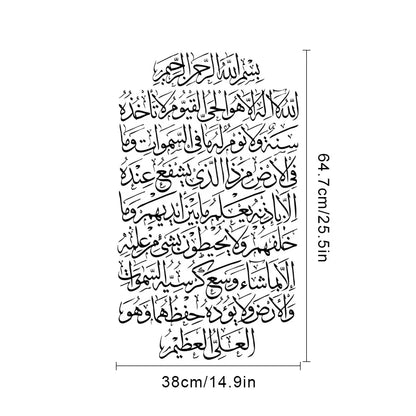 بسم الله الرحمن الرحيم
الله لا اله الا هو الحي القيوم لا تاخذه
سنة ولا نوم له ما في السموات وما
في الارض من ذا الذي يشفع عنده
الا باذنه يعلم ما بين ايديهم وما
خلفهم ولا يحيطون بشئ من علمه
الا بما شاء وسع كرسيه السموات
والارض ولا يوده حفظهما وهو
العلي العظيم
64.7cm/25.5in
38cm/14.9in